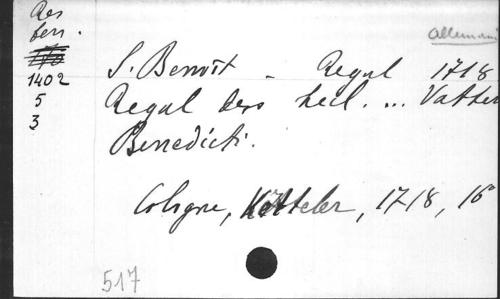 Res
ben.
1402
5
3
allemand
S. Benoît - Regul 1718
Regul des heil. ... Vatter
Benedicti.
Cologne, Ketteler, 1718, 16°
517